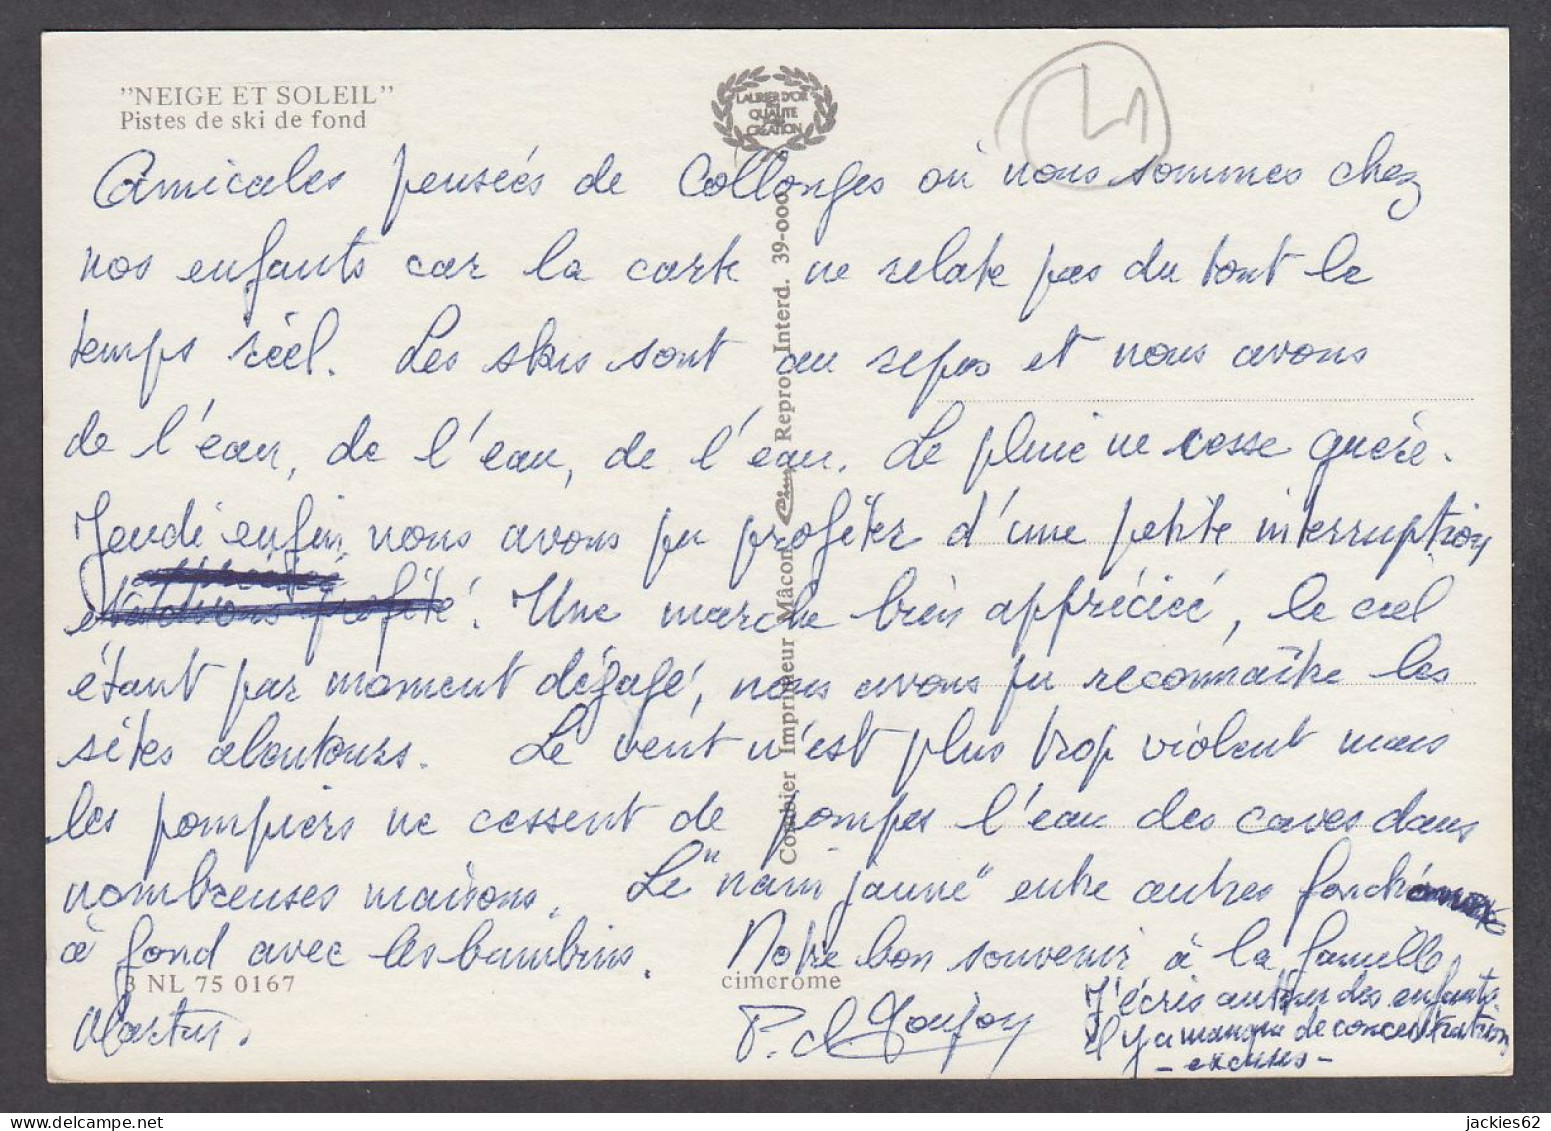 "NEIGE ET SOLEIL"
Pistes de ski de fond
LAURIER D'OR
DE
QUALITE
CREATION
Amicales pensées de Collonges où nous sommes chez
nos enfants car la carte ne relate pas du tout le
temps réel. Les skis sont au repos et nous avons
de l'eau, de l'eau, de l'eau. La pluie ne cesse guère.
Jeudi enfin, nous avons pu profiter d'une petite interruption
profité. Une marche bien appréciée, le ciel
étant par moment dégagé, nous avons pu reconnaître les
sites alentours. Le vent n'est plus trop violent mais
les pompiers ne cessent de pomper l'eau des caves dans
nombreuses maisons. Le "nain jaune" entre autres
à fond avec les bambins. Notre bon souvenir à la famille
P. J'écris autour des enfants.
Il y a manque de concentration
- excuses -
3 NL 75 0167
cimcrome
Combier Imprimeur Mâcon Cim Repro. Interd. 39-000
jackies62